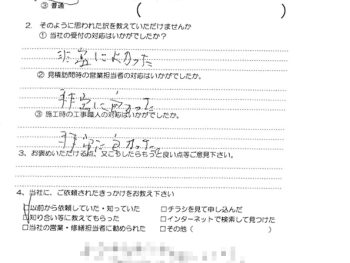 ③ 普通
(　　　)
2. そのように思われた訳を教えていただけませんか
① 当社の受付の対応はいかがでしたか?
非常によかった
② 見積訪問時の営業担当者の対応はいかがでしたか。
非常に良かった
③ 施工時の工事職人の対応はいかがでしたか。
非常に良かった。
3. お褒めいただける点、又こうしたらもっと良い点等ご意見下さい。
4. 当社に、ご依頼されたきっかけをお教え下さい
□以前から依頼していた・知っていた　□チラシを見て申し込んだ
□知り合い等に教えてもらった　□インターネットで検索して見つけた
□当社の営業・修繕担当者に勧められた　□その他（